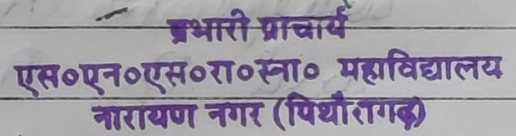 प्रभारी प्राचार्य
एस०एन०एस०रा०स्ना० महाविद्यालय
नारायण नगर (पिथौरागढ़)